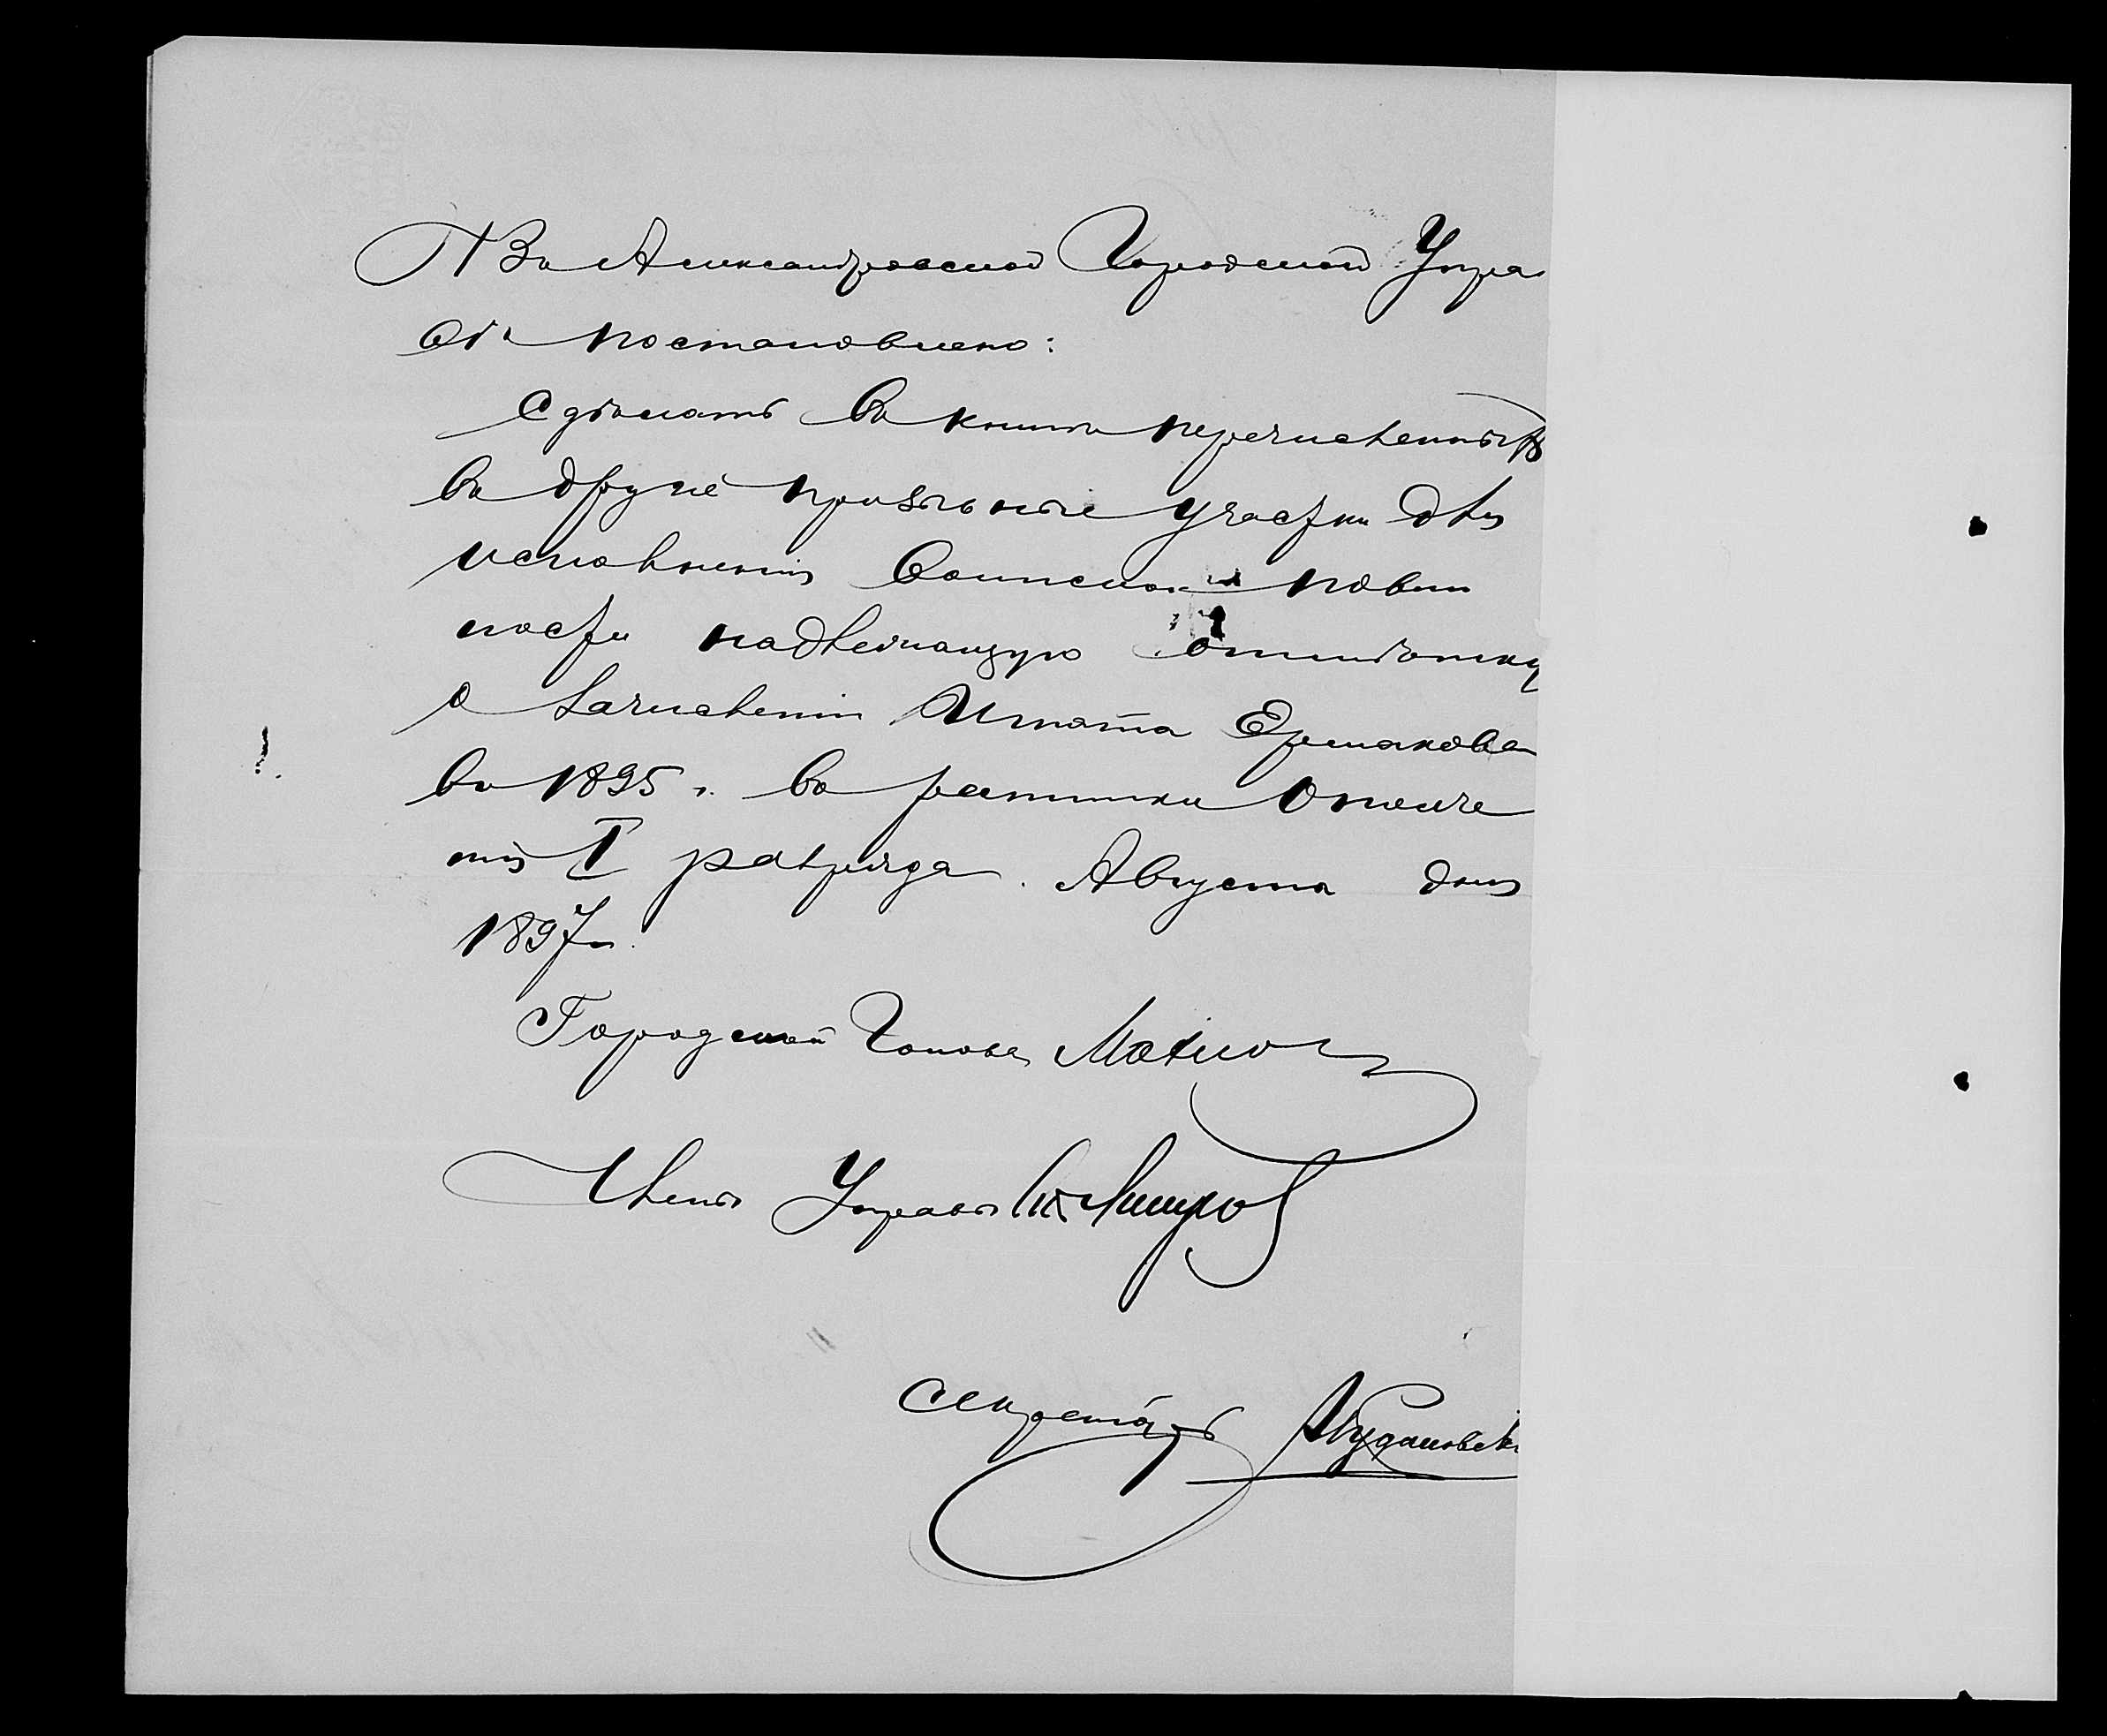 Въ Александровской Городской Упра
вѣ постановлено:
Сдѣлать въ книгѣ перечисленныхъ
въ другіе призывные участки для
исполненія воинской повин
ности надлежащую отмѣтку
о зачисленіи Игната Ермакова
въ 1895 г. въ ратники ополче
нія I разряда. Августа дня
1897 г.
Городской Голова
Членъ Управы
Секретарь